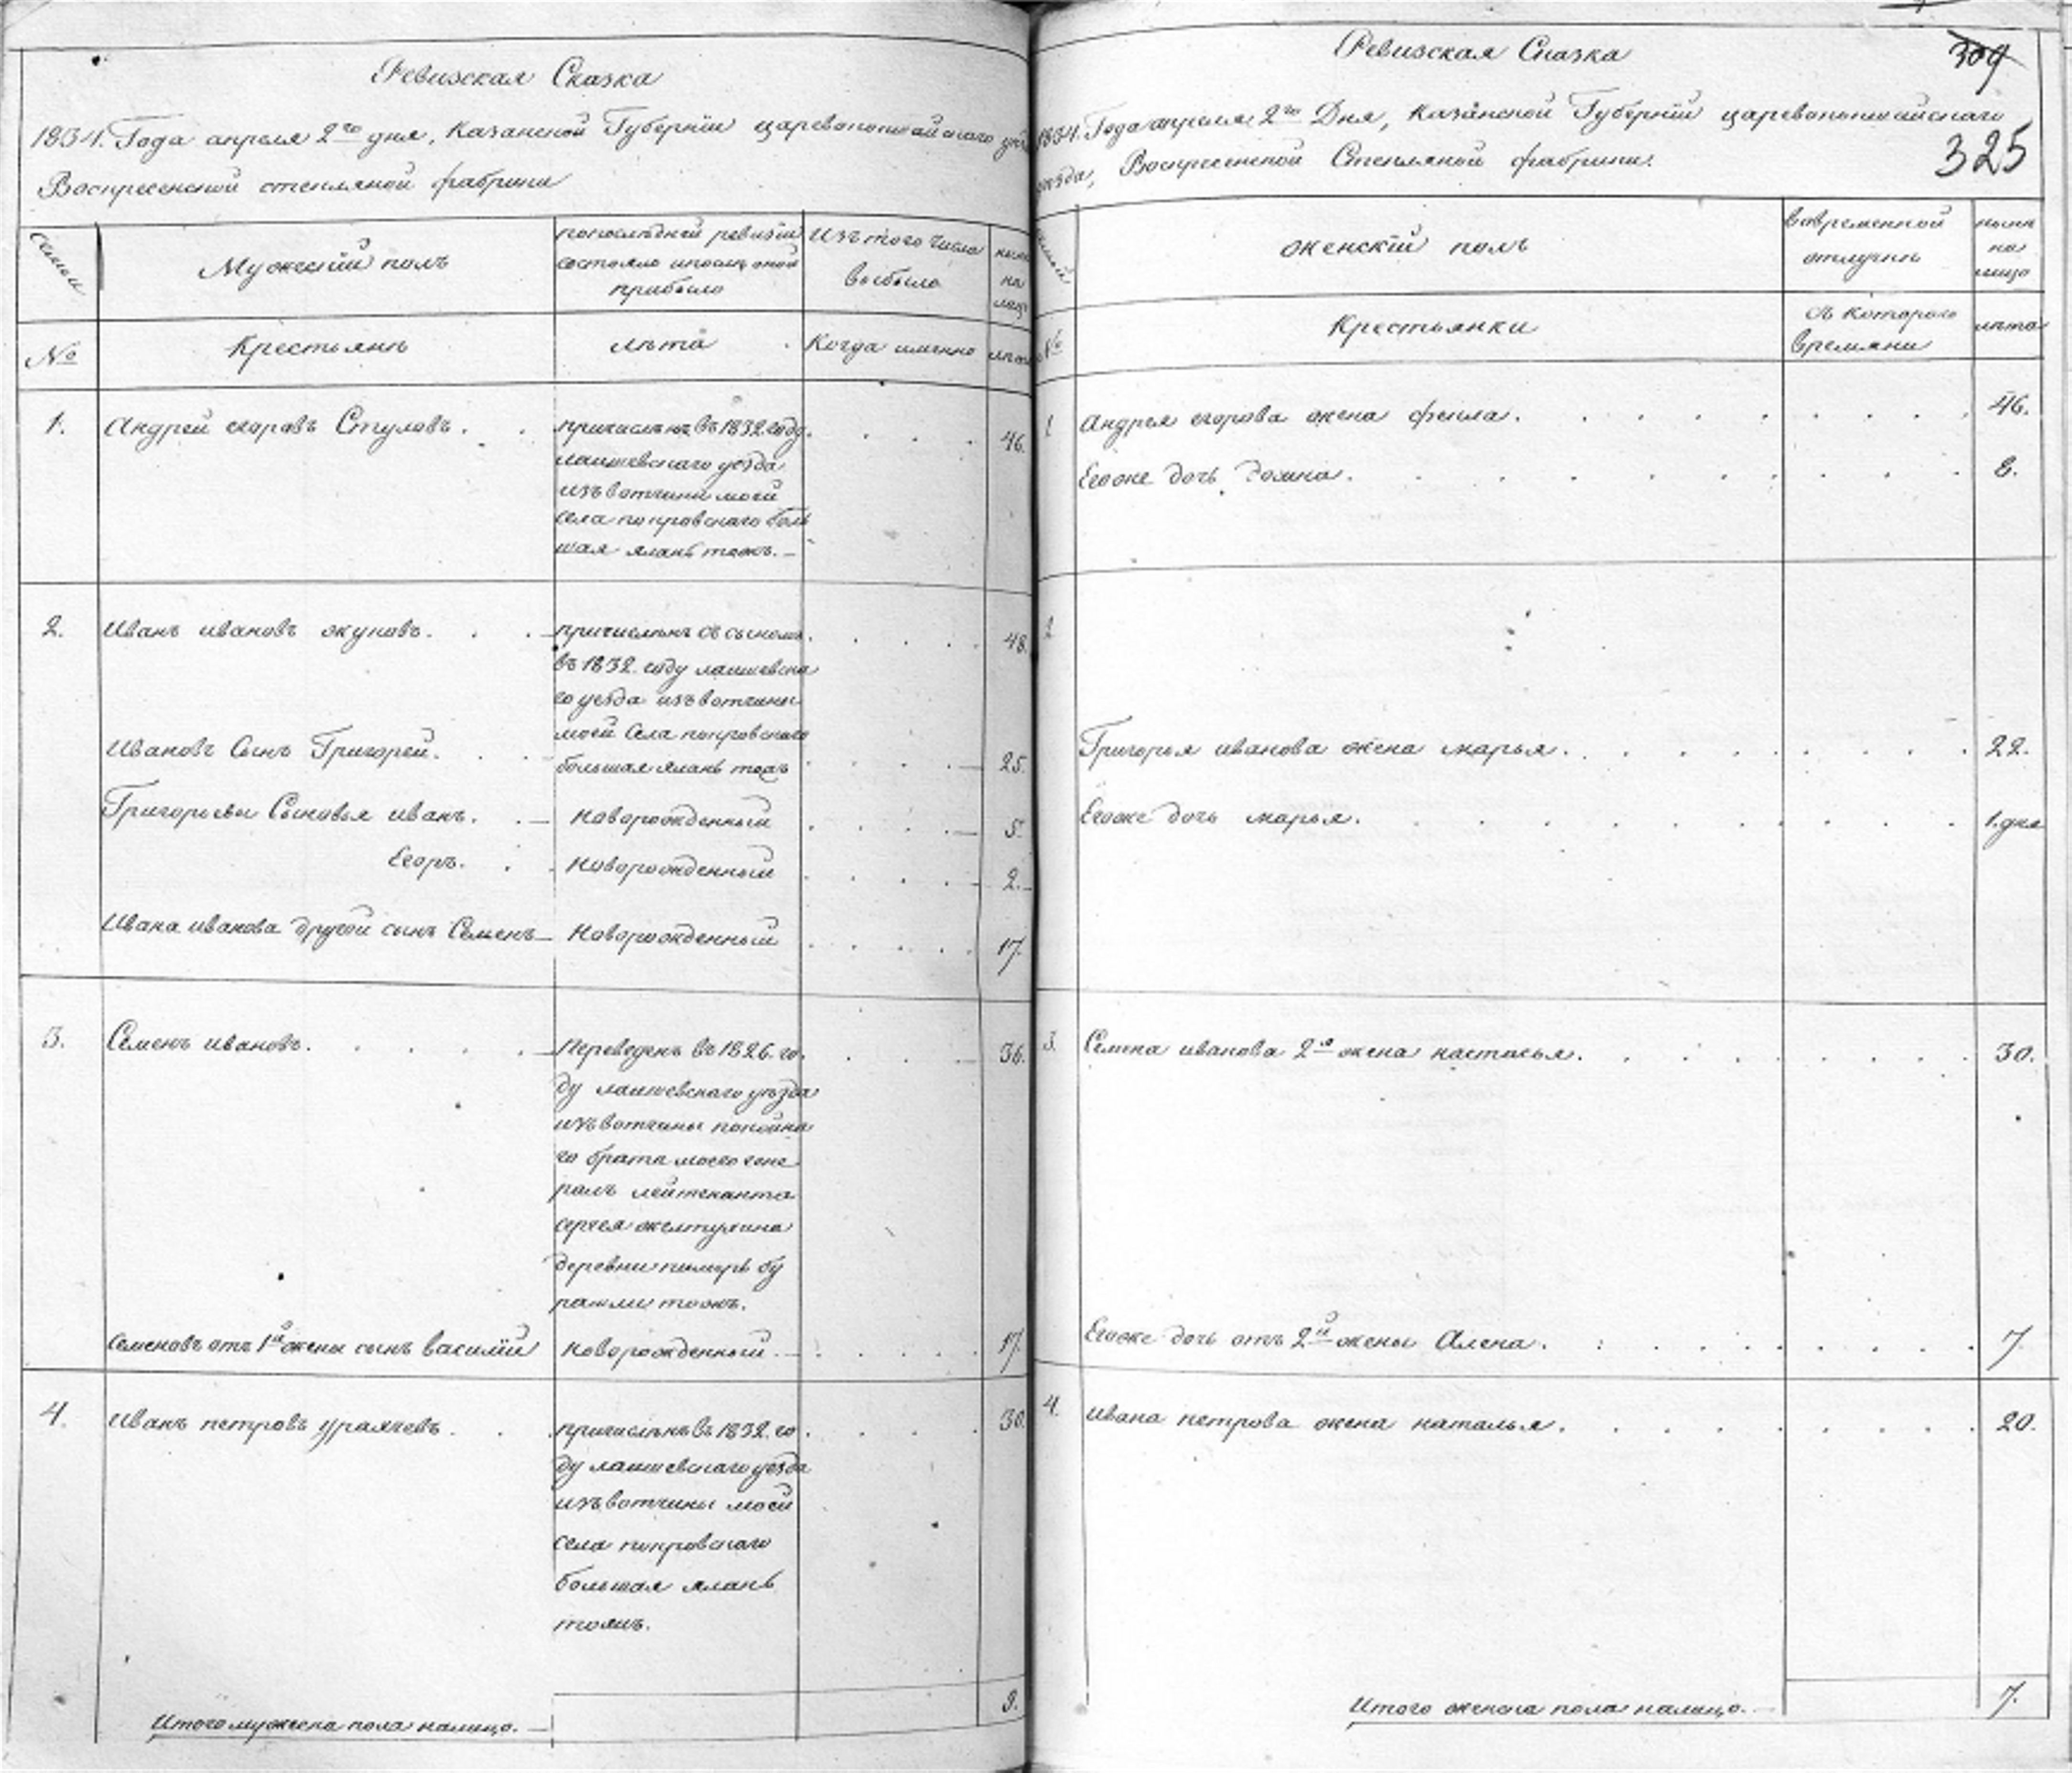 Ревизская Сказка
1834. Года апреля 2го дня, Казанской Губернїи царевококшайскаго уѣ
Воскресенской стекляной фабрики
семьи
Мужескїй полъ
попослѣдней ревизїи
состояло ипослѣ оной
прибыло
Изъ того числа
выбыло
нынѣ
на
лицо
№
Крестьянѣ
лѣта
Когда именно
лѣта
1.
Андрей егоровъ Стуловъ.
причисленъ въ 1832. году.
46.
лаишевскаго уезда
изъ вотчини моей
села покровскаго боль
шая елань тожъ.
2.
Иванъ ивановъ окуновъ.
причисленъ съ сыномъ
48.
въ 1832. году лаишевска
го уезда изъ вотчины
моей села покровскаго
Ивановъ Сынъ Григорей.
большая елань тожъ
25.
Григорьевы Сыновья иванъ.
Новорожденный
5.
Егоръ.
Новорожденный
2.
Ивана иванова другой сынъ Семенъ
Новорожденный
17.
3.
Семенъ ивановъ.
Переведенъ въ 1826. го
36.
ду лаишевскаго уѣзда
изъ вотчины покойна
го брата моего гене
ралъ лейтенанта
сергея желтухина
деревни бу
тожъ.
Семеновъ отъ 1й жены сынъ василїй
Новорожденный
17.
4.
Иванъ петровъ
причисленъ въ 1832. го
30.
ду лаишевскаго уезда
изъ вотчины моей
села покровскаго
большая елань
тожъ.
Итого мужска пола налицо.
9.
Ревизская Сказка
309
1834. Года апреля 2го Дня, Казанской Губернїи царевококшайскаго
уезда, Воскресенской Стекляной фабрики.
325
семьи
женскїй полъ
вовременной
отлучки
нынѣ
на
лицо
№
Крестьянки
съ котораго
времяни
лѣта
1
Андрея егорова жена фекла.
46.
Егоже дочь Домна.
8.
2
Григорья иванова жена марья.
22.
Егоже дочь марья.
1. дня
3.
Семена иванова 2я жена настасья.
30.
Егоже дочь отъ 2й жены Алена.
7
4.
Ивана петрова жена наталья.
20.
Итого женска пола налицо.
7.